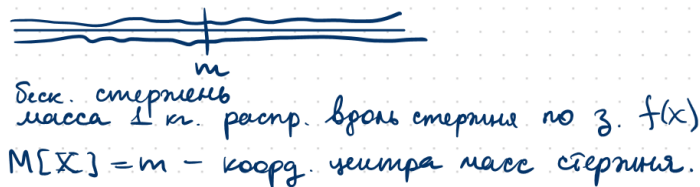 m
беск. стержень
масса 1 кг. распр. вдоль стержня по з. f(x)
M[X] = m – коорд. центра масс стержня.